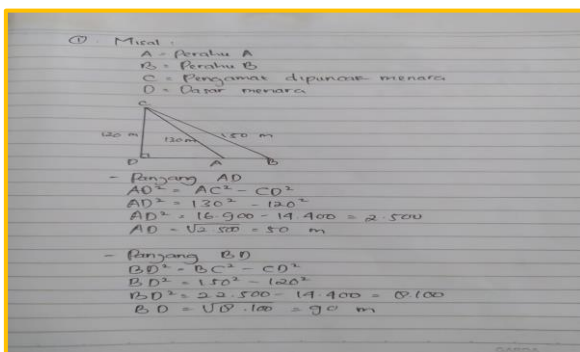 ① . Misal :
A = Perahu A
B = Perahu B
C = Pengamat dipuncak menara
D = Dasar menara
C
120 m 120m 150 m
D A B
- Panjang AD
AD² = AC² - CD²
AD² = 130² - 120²
AD² = 16.900 - 14.400 = 2.500
AD = √2.500 = 50 m
- Panjang BD
BD² = BC² - CD²
BD² = 150² - 120²
BD² = 22.500 - 14.400 = 8.100
BD = √8.100 = 90 m